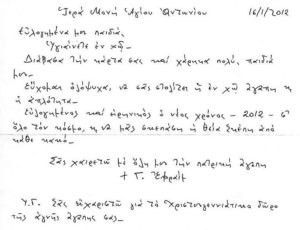 Ἱερὰ Μονὴ Ἁγίου Ἀντωνίου 16/1/2012
Εὐλογημένα μου παιδιά,
Ὑγιαίνετε ἐν χῷ_
Διάβασα τὴν κάρτα σας καὶ χάρηκα πολύ, παιδιά
μου_
Εὔχομαι ὁλόψυχα, νὰ σᾶς στολίζει ἡ ἐν χῷ ἀγάπη κ
ἡ ἁπλότητα_
Εὐλογημένος καὶ εἰρηνικὸς ὁ νέος χρόνος - 2012 - σ'
ὅλο τὸν κόσμο, κ νὰ μᾶς σκεπάζῃ ἡ θεία Σκέπη ἀπὸ
κάθε κακό_
Σᾶς χαιρετῶ μὲ ὅλη μου τὴν πατρικὴ ἀγάπη
+ Γ. Ἐφραίμ
Υ.Γ. Σᾶς εὐχαριστῶ γιὰ τὸ Χριστουγεννιάτικο δῶρο
τῆς ἁγνῆς ἀγάπης σας_